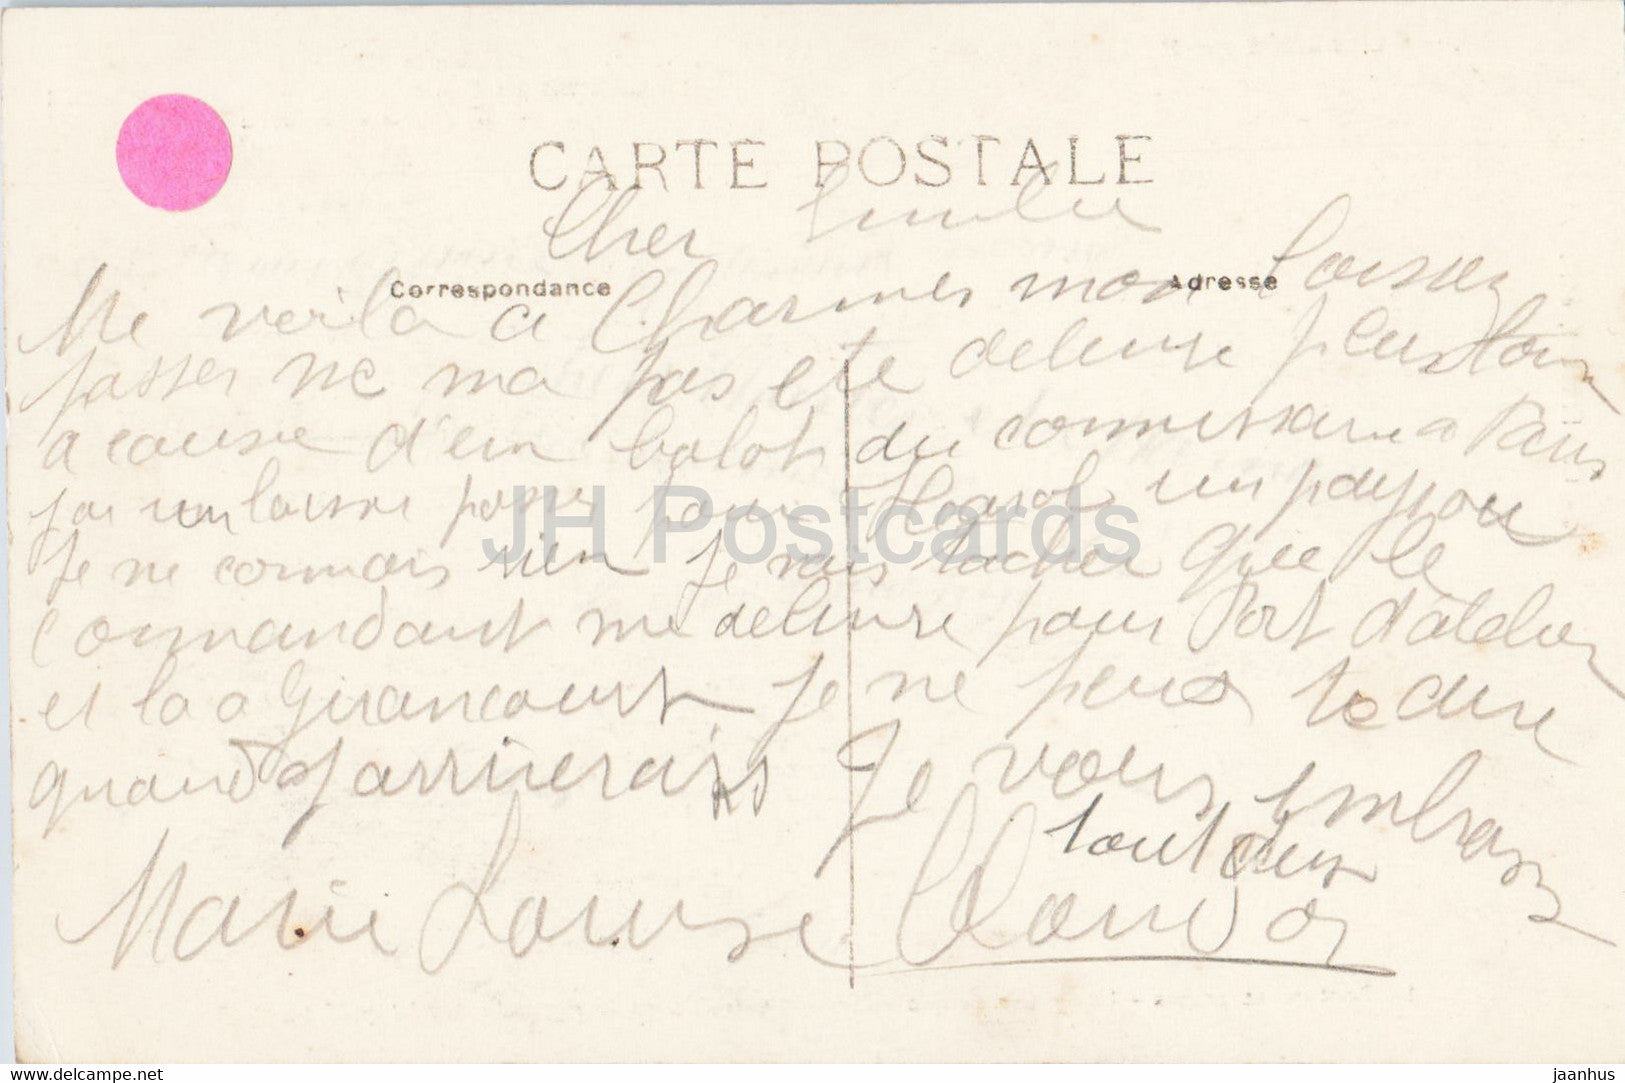 CARTE POSTALE
Cher Emilie
Correspondance
Adresse
Me voila a Charmes mon laissez
passer ne ma pas ete delivre
a cause d'un balot du commissaire a Paris
jai un laisse passe pour un pays ou
Je ne connais rien Je vais tacher que le
commandant me delivre pour Port
et la a Girancourt Je ne peus te dire
quand J'arrierais Je vous embrasse
tout deux
Marie Louise
JH Postcards
www.delcampe.net
jaanhus